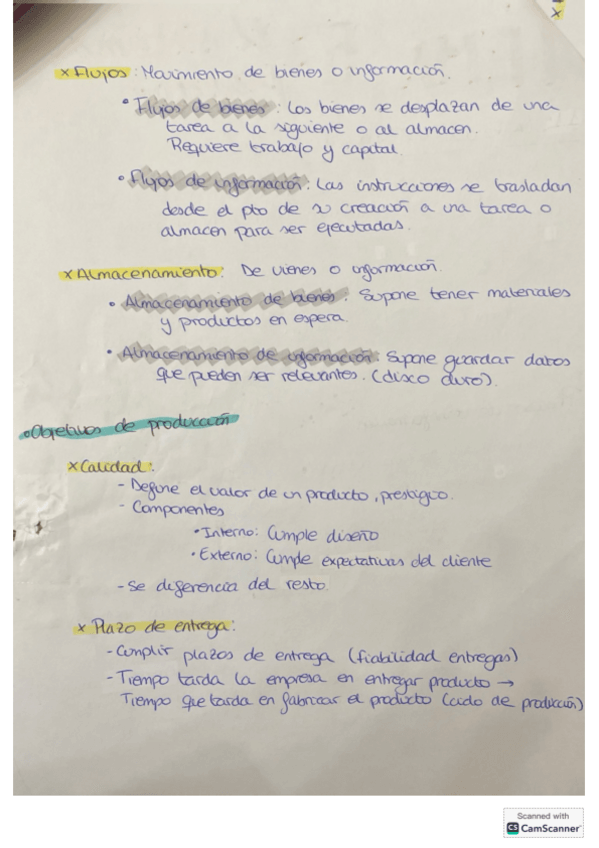 x
x Flujos: Movimiento de bienes o información.
• Flujos de bienes: Los bienes se desplazan de una
tarea a la siguiente o al almacen.
Requiere trabajo y capital.
• Flujos de información: Las instrucciones se trasladan
desde el pto de su creación a una tarea o
almacen para ser ejecutadas.
x Almacenamiento: De vienes o información.
• Almacenamiento de bienes: Supone tener materiales
y productos en espera.
• Almacenamiento de información: Supone guardar datos
que pueden ser relevantes. (disco duro).
• Objetivos de producción
x Calidad:
- Define el valor de un producto, prestigio.
- Componentes
• Interno: Cumple diseño
• Externo: Cumple expectativas del cliente
- Se diferencia del resto.
x Plazo de entrega:
- Cumplir plazos de entrega (fiabilidad entregas)
- Tiempo tarda la empresa en entregar producto →
Tiempo que tarda en fabricar el producto (ciclo de producción)
Scanned with
CS CamScanner